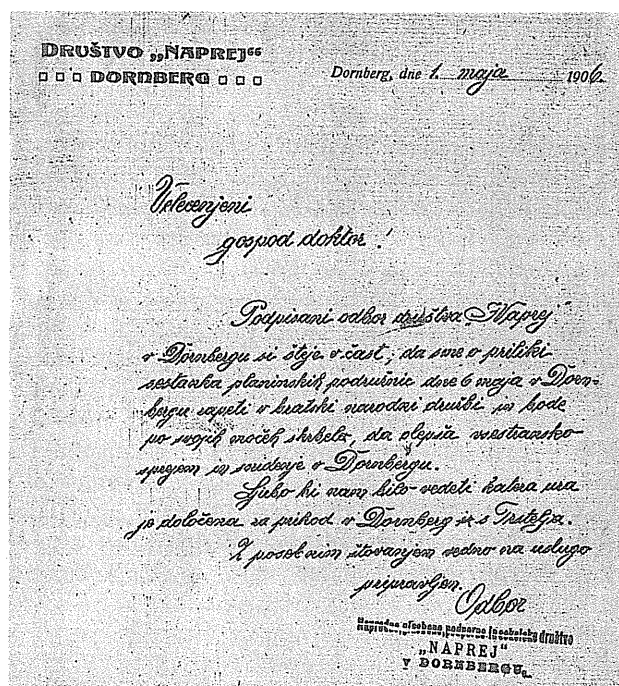 DRUŠTVO „NAPREJ“
DORNBERG
Dornberg, dne 1. maja 1906
Velecenjeni
gospod doktor!
Podpisani odbor društva „Naprej“
v Dornbergu si šteje v čast, da sme o priliki
sestanka planinskih podružnic dne 6 maja v Dorn-
bergu zapeti v bratski narodni družbi in bode
po svojih močeh skrbela, da olepša vsestransko
sprejem in snidenje v Dornbergu.
Ljubo bi nam bilo vedeti katera ura
je določena za prihod v Dornberg iz s Trstelja.
Z posebnim štovanjem vedno na uslugo
pripravljen.
Odbor
društvo
„NAPREJ“
V DORNBERGU.